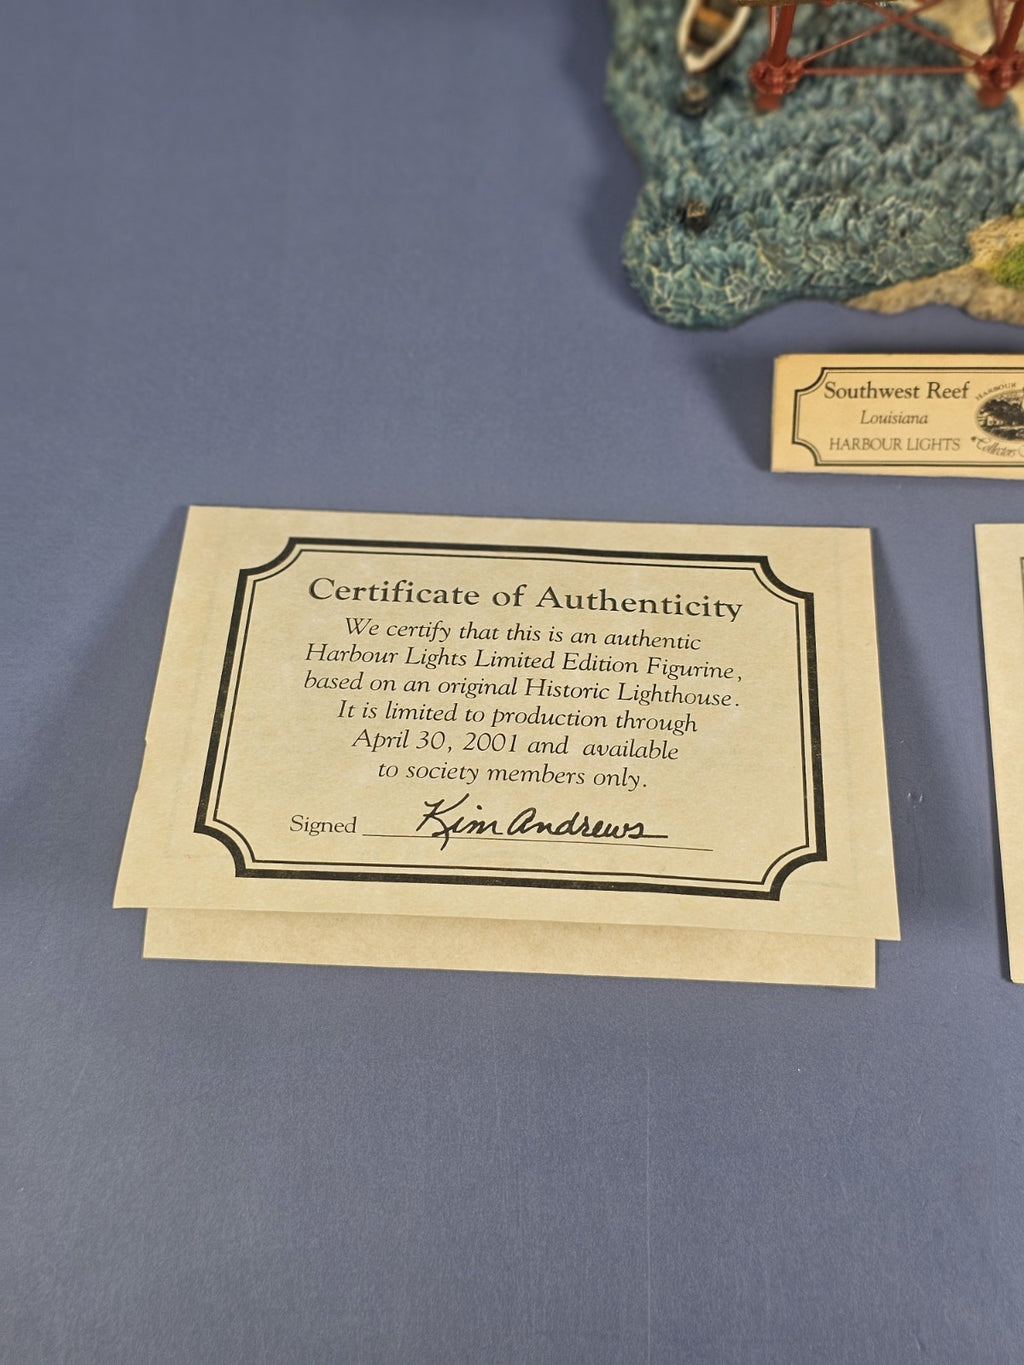 Southwest Reef
Louisiana
HARBOUR LIGHTS
HARBOUR
Collectors
Certificate of Authenticity
We certify that this is an authentic
Harbour Lights Limited Edition Figurine,
based on an original Historic Lighthouse.
It is limited to production through
April 30, 2001 and available
to society members only.
Signed Kim Andrews